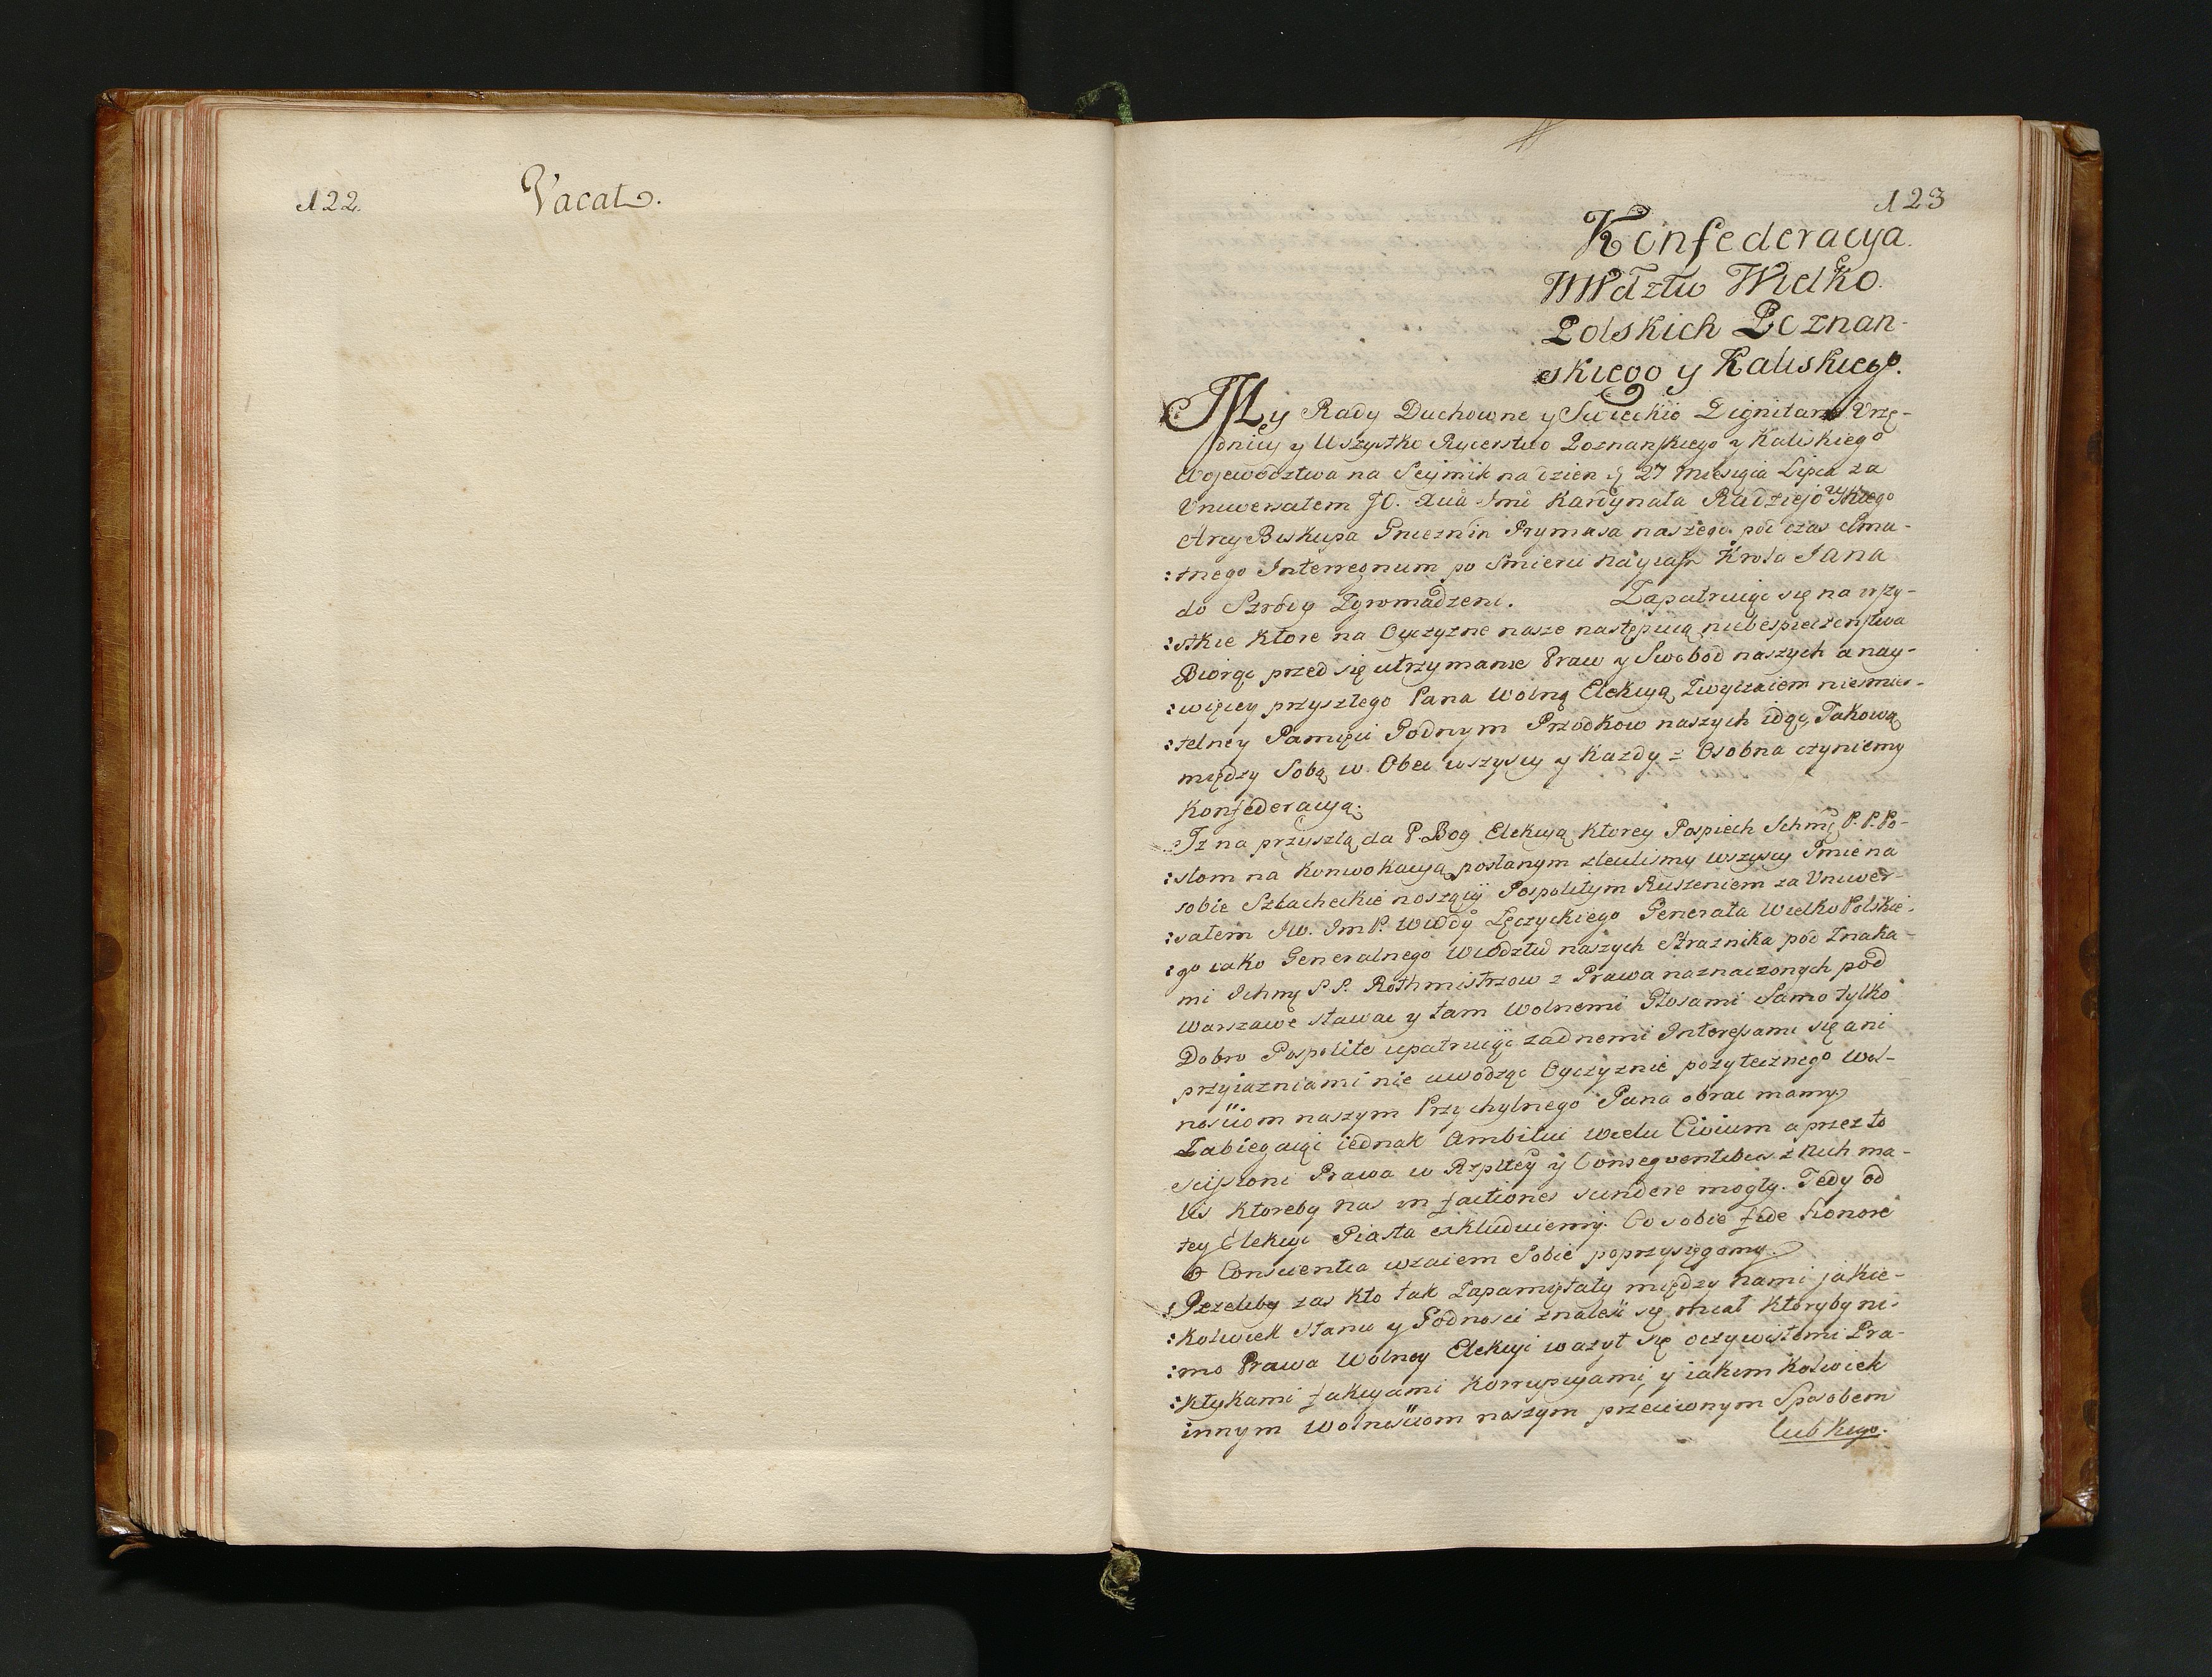 122.
Vacat.
123
Konfederacya
WWdztw Wielko
Polskich Poznan-
skiego y Kaliskiego.
My Rady Duchowne y Swieckie Dignitarze Vrzę-
dnicy y Wszystko Rycerstwo Poznanskiego y Kaliskiego
Wojewodztwa na Seymik na dzien 27 Miesiąca Lipca za
Vniwersałem JO. Xcia Jmci Kardynała Radziejowskiego
Arcy Biskupa Gnieznin Prymasa naszego pod czas smu-
:tnego Interregnum po Smierci Nayiasn Krola Jana
do Szrody Zgromadzeni. Zapatruiąc się na wszy-
:stkie Ktore na Oyczyzne nasze następuią niebespieczenstwa
Biorąc przed się utrzymanie Praw y Swobod naszych a nay-
:więcey przyszłego Pana Wolną Elekcyą, Zwyczaiem niesmier-
:telney Pamięci Godnym Przodkow naszych idąc, Takową
między Sobą w Obec wszyscy y Kazdy z Osobna czyniemy
Konfederacyą.
Iz na przyszłą da P. Bog Elekcyą Ktorey Pospiech Ichmę P. P. Po-
:słom na Konwokacyą posłanym zleciliśmy wszyscy Imie na
sobie Szlacheckie noszący Pospolitym Ruszeniem za Vniwer-
:sałem JW. Im P. Wwdy Łęczyckiego Generała WielkoPolskie-
:go iako Generalnego Wiodztw naszych Straznika pod Znaka-
mi Ichmę P P. Rothmistrzow z Prawa naznaczonych pod
Warszawe stawac y tam Wolnemi Głosami Samo tylko
Dobro Pospolite upatruiąc zadnemi Interessami się ani
przyiazniami nie uwodząc Oyczyznie pozytecznego Wol-
nosciom naszym Przychylnego Pana obrac mamy
Zabiegaiąc iednak Ambitui wielu Civium a przez to
Prawa w Rzpltey y Conseqventibus z Nich ma-
lis Ktoreby nas in factiones scindere mogły. Tedy od
tey Elekcyi Piasta exkluduiemy. Co sobie fide honore
& Conscientia wzaiem Sobie poprzysięgamy.
Jezeliby zas Kto tak Zapamiętały między nami jakie-
:kolwiek stanu y Godnosci znalesc się miał Ktoryby mi-
:mo Prawa Wolney Elekcyi wazył się oczywistemi Pra-
:ktykami fakcyami Korrupcyami, y iakim Kolwiek
innym Wolnosciom naszym przeciwnym Sposobem
lub Kogo.